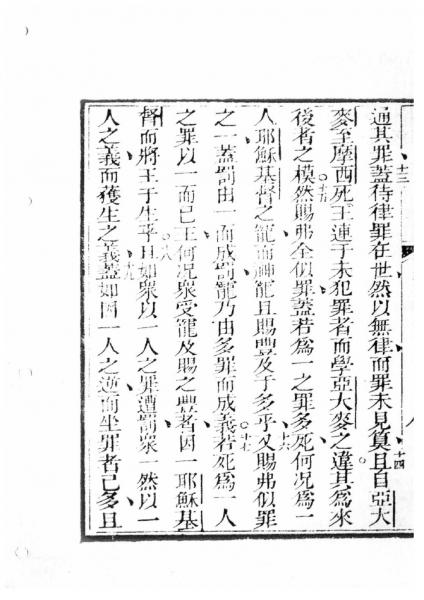 通其罪十三蓋待律罪在世然以無律而罪未見算十四且自亞大
麥至摩西死王連于未犯罪者而學亞大麥之違其為來
後者之模十五然賜弗全似罪蓋若為一之罪多死何况為一
人耶穌基督之寵而神寵且賜豐及于多乎十六又賜弗似罪
之一蓋罰由一而成罰寵乃由多罪而成義十七若死為一人
之罪以一而已王何况衆受寵及賜之豐者因一耶穌基
督而將王于生乎十八且如衆以一人之罪遭罰衆一然以一
人之義而獲生之義十九蓋如因一人之逆而坐罪者已多且